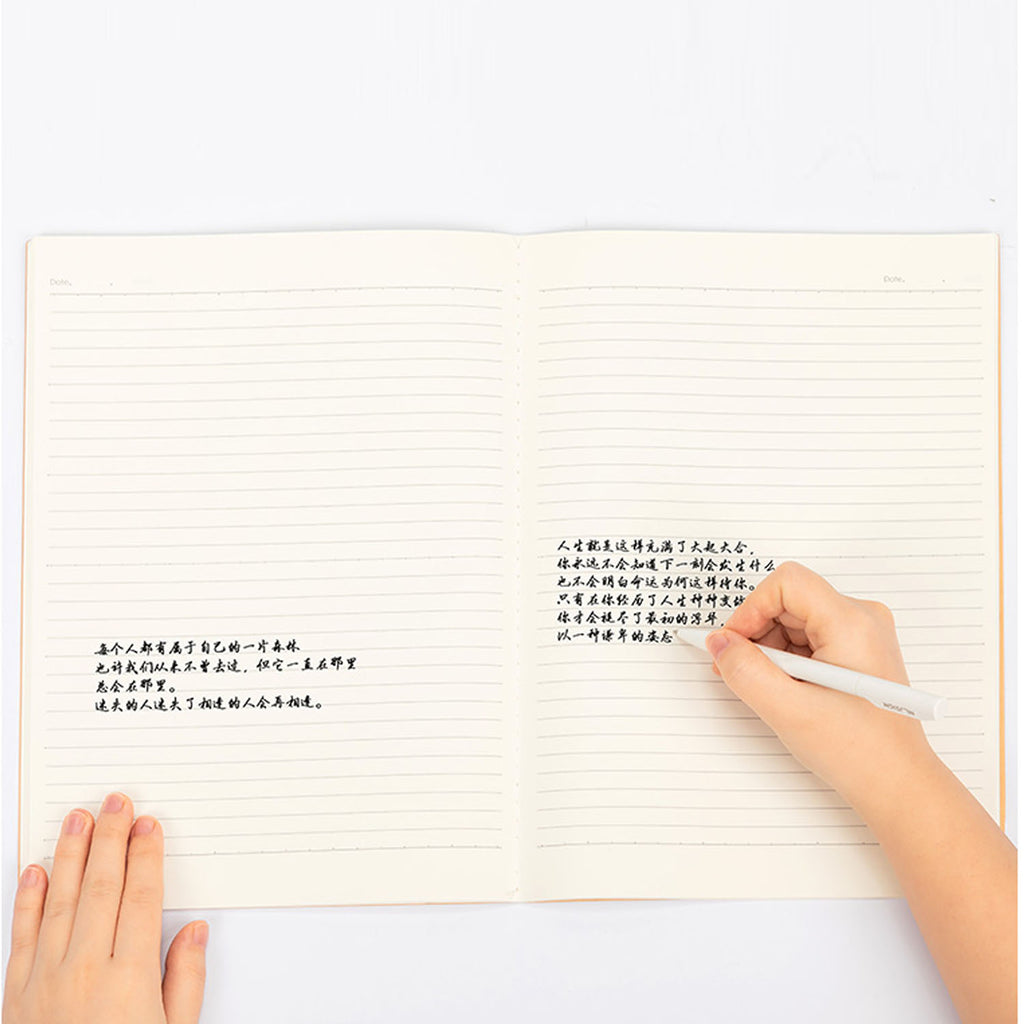 Date.
每个人都有属于自己的一片森林
也许我们从来不曾去过，但它一直在那里
总会在那里。
迷失的人迷失了相逢的人会再相逢。
Date.
人生就是这样充满了大起大合，
你永远不会知道下一刻会发生什么
也不会明白命运为何这样待你。
只有在你经历了人生种种变故
你才会褪尽了最初的浮华，
以一种谦卑的姿态